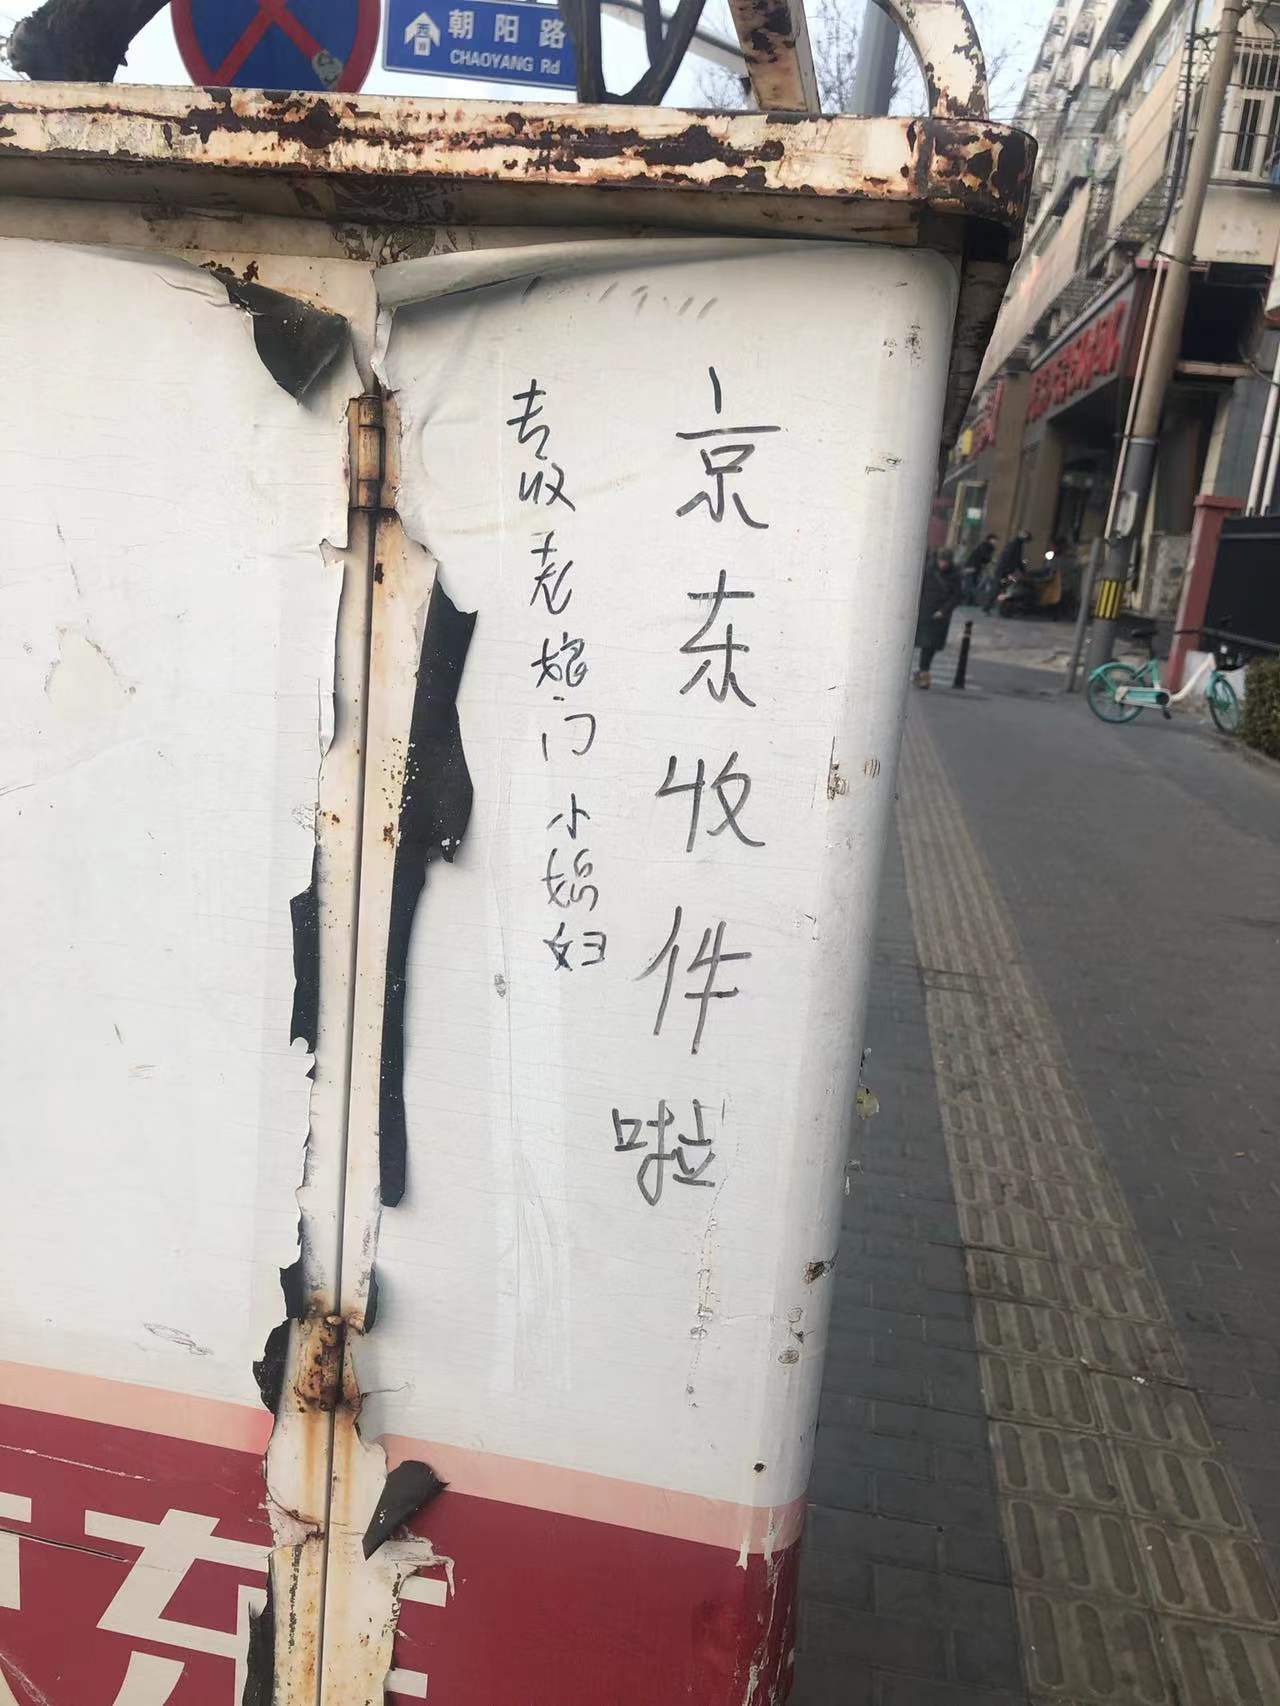 朝阳路
CHAOYANG Rd
京东收件啦
专收老娘门小媳妇
东